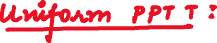 Uniform PPT T: